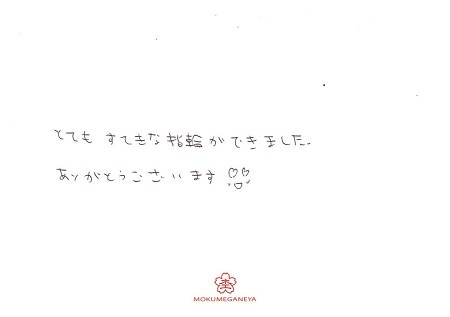 とても すてきな指輪ができました。
ありがとうございます
MOKUMEGANEYA